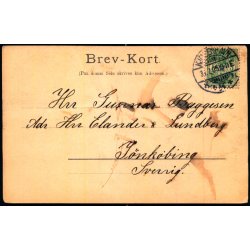 Brev-Kort.
(Paa denne Side skrives kun Adressen.)
Hrr Gunnar Baggesen
Adr Hrr Elander & Lundberg
Jönköbing
Sverrig.